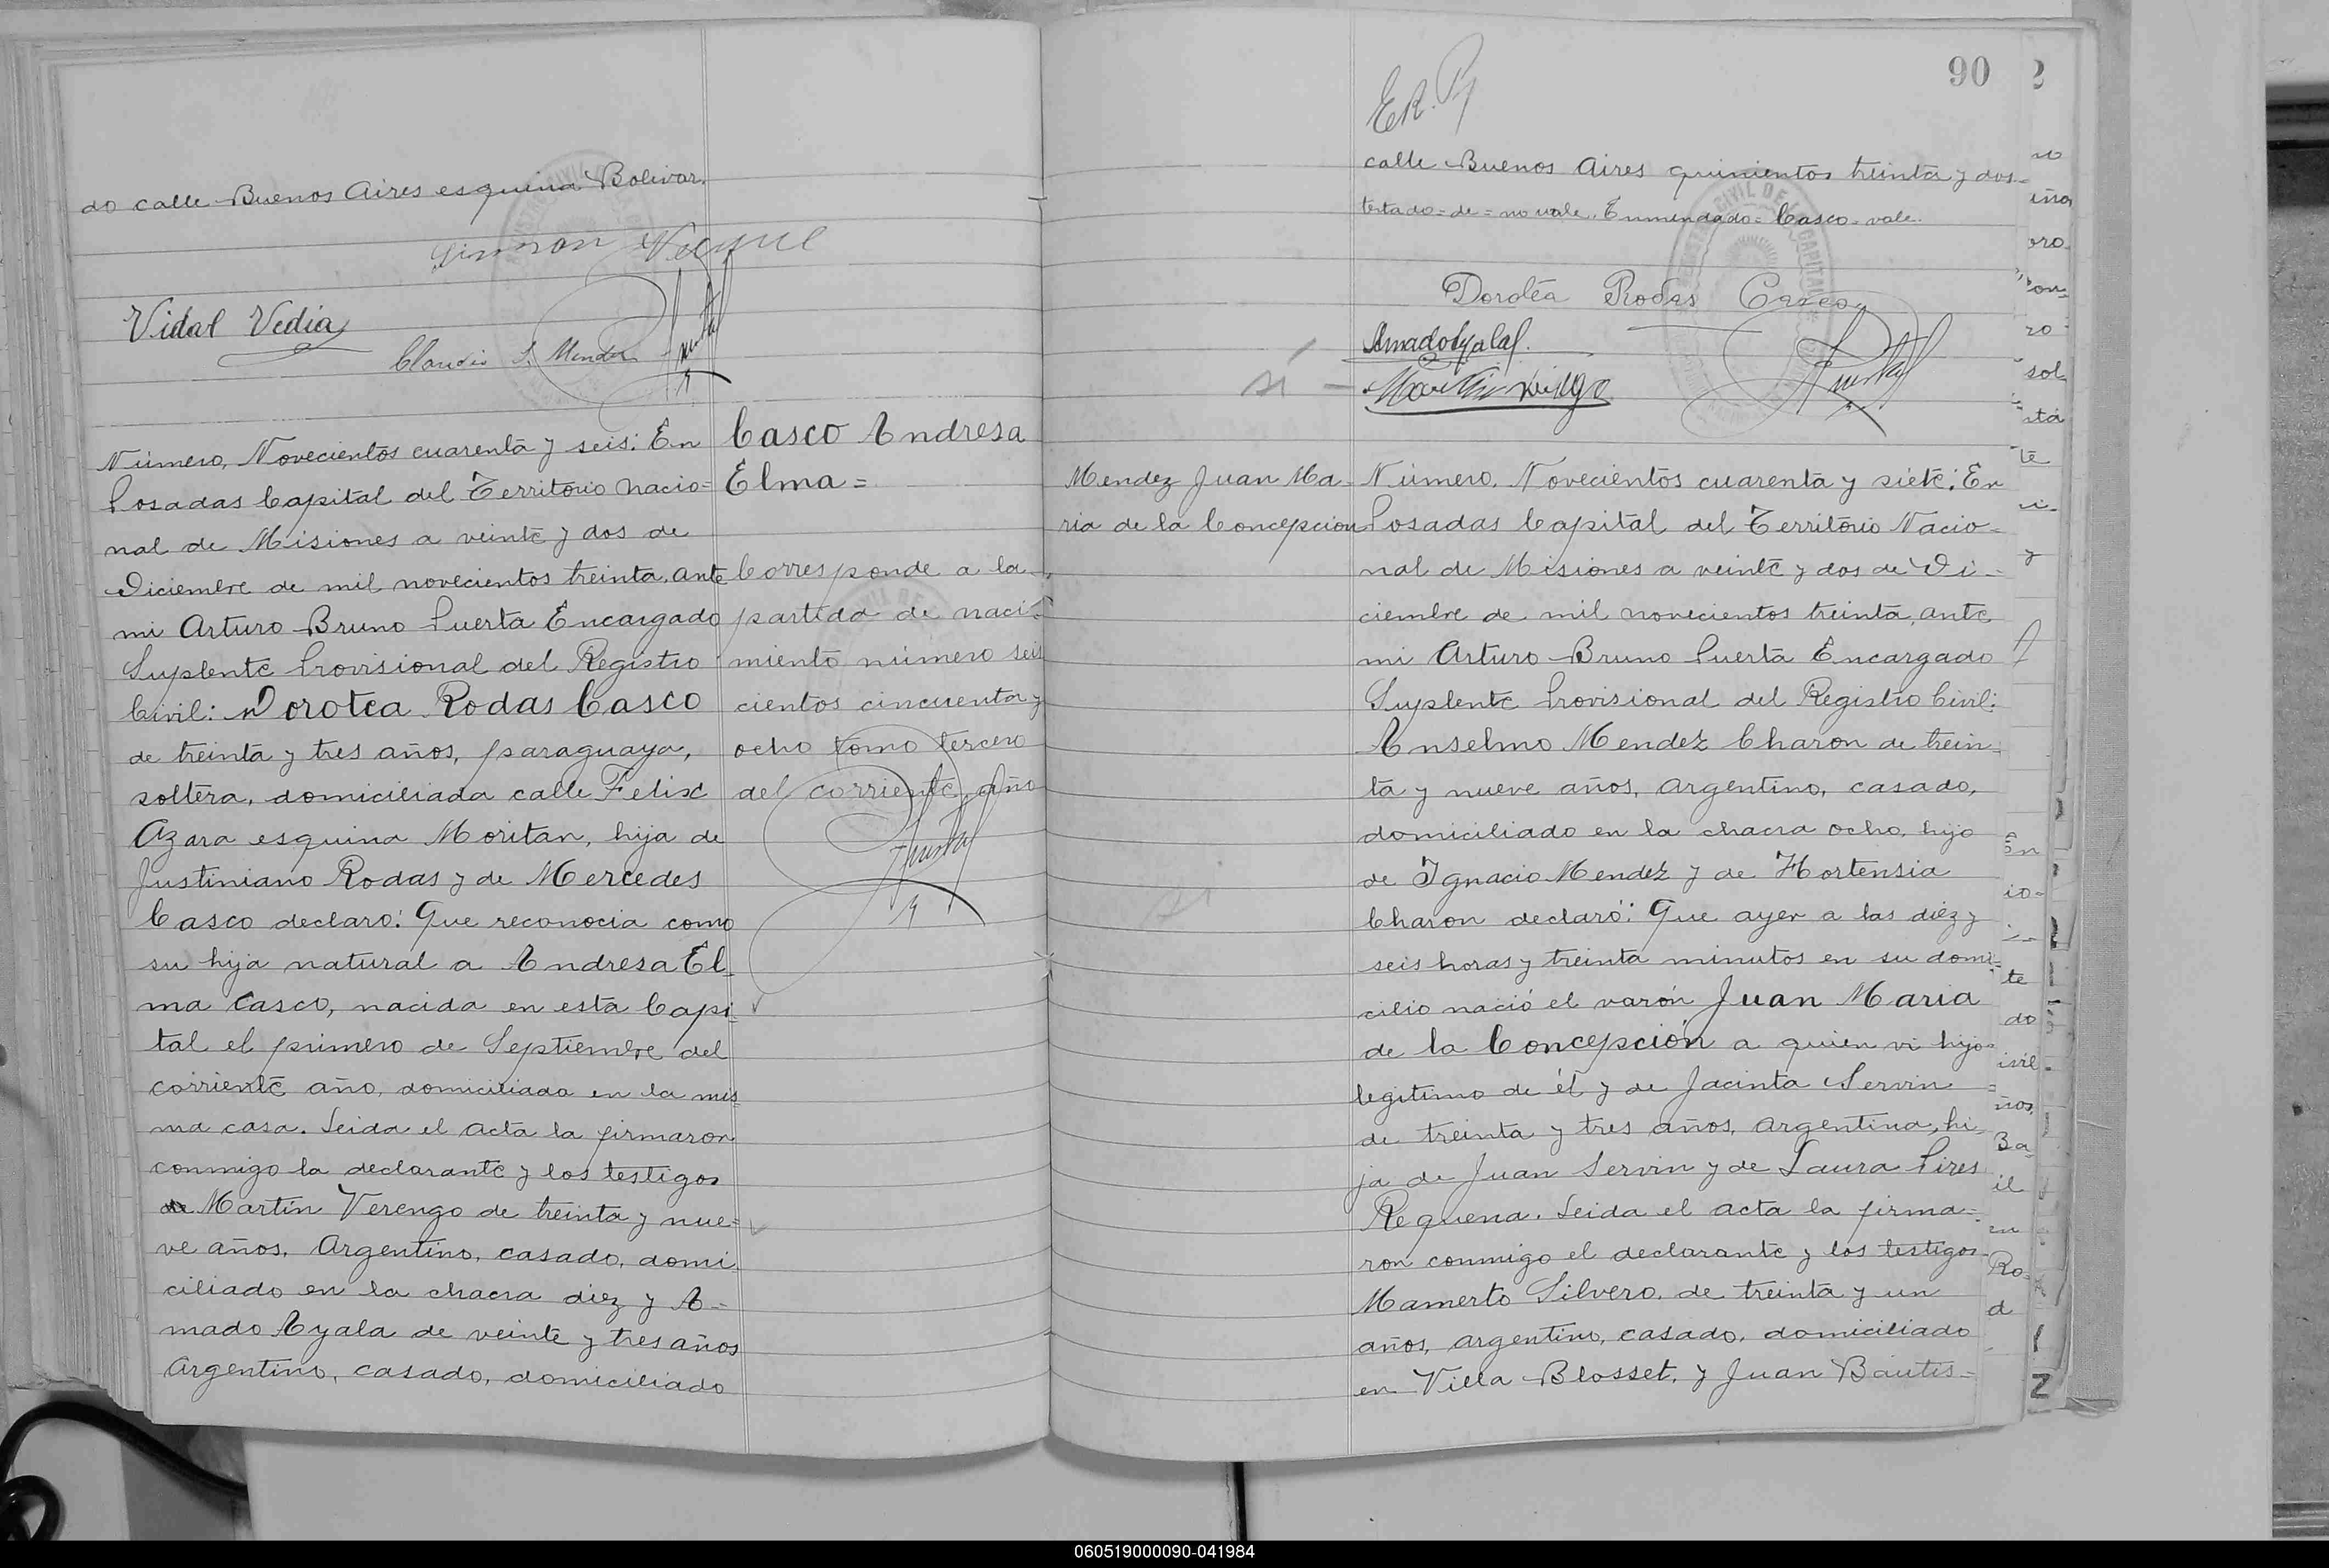 do calle Buenos Aires esquina Bolivar.
Vidal Vedia
Claudio S. Mendez
Número, Novecientos cuarenta y seis: En
Posadas Capital del Territorio Nacio=
nal de Misiones a veinte y dos de
Diciembre de mil novecientos treinta, ante
mi Arturo Bruno Puerta Encargado
Suplente Provisional del Registro
Civil: Dorotea Rodas Casco
de treinta y tres años, paraguaya,
soltera, domiciliada calle Felix
Azara esquina Moritan, hija de
Justiniano Rodas y de Mercedes
Casco declaro: Que reconocia como
su hija natural a Andresa El
ma Casco, nacida en esta Capi=
tal el primero de Septiembre del
corriente año, domiciliada en la mis
ma casa. Leida el acta la firmaron
conmigo la declarante y los testigos
de Martin Verengo de treinta y nue=
ve años, Argentino, casado, domi
ciliado en la chacra diez y A=
mado Ayala de veinte y tres años
Argentino, casado, domiciliado
Casco Andresa
Elma=
Corresponde a la
partida de naci=
miento número seis
cientos cincuenta y
ocho tomo tercero
del corriente año
90
calle Buenos Aires quinientos treinta y dos
testado=de=no vale. Enmendado=Casco=vale.
Dorotéa Rodas Casco
Amado Ayala
Si
Mendez Juan Ma
ria de la Concepcion
Número, Novecientos cuarenta y siete: En
Posadas Capital del Territorio Nacio=
nal de Misiones a veinte y dos de Di=
ciembre de mil novecientos treinta, ante
mi Arturo Bruno Puerta Encargado
Suplente Provisional del Registro Civil:
Anselmo Mendez Charon de trein=
ta y nueve años, Argentino, casado,
domiciliado en la chacra ocho, hijo
de Ignacio Mendez y de Hortensia
Charon declaró: Que ayer a las diez y
seis horas y treinta minutos en su domi=
cilio nació el varón Juan Maria
de la Concepción a quien vi hijo
legitimo de él y de Jacinta Servin
de treinta y tres años, Argentina, hi
ja de Juan Servin y de Laura Pires
Requena. Leida el acta la firma=
ron conmigo el declarante y los testigos
Mamerto Silvero, de treinta y un
años, argentino, casado, domiciliado
en Villa Blosset, y Juan Bautis=
060519000090-041984